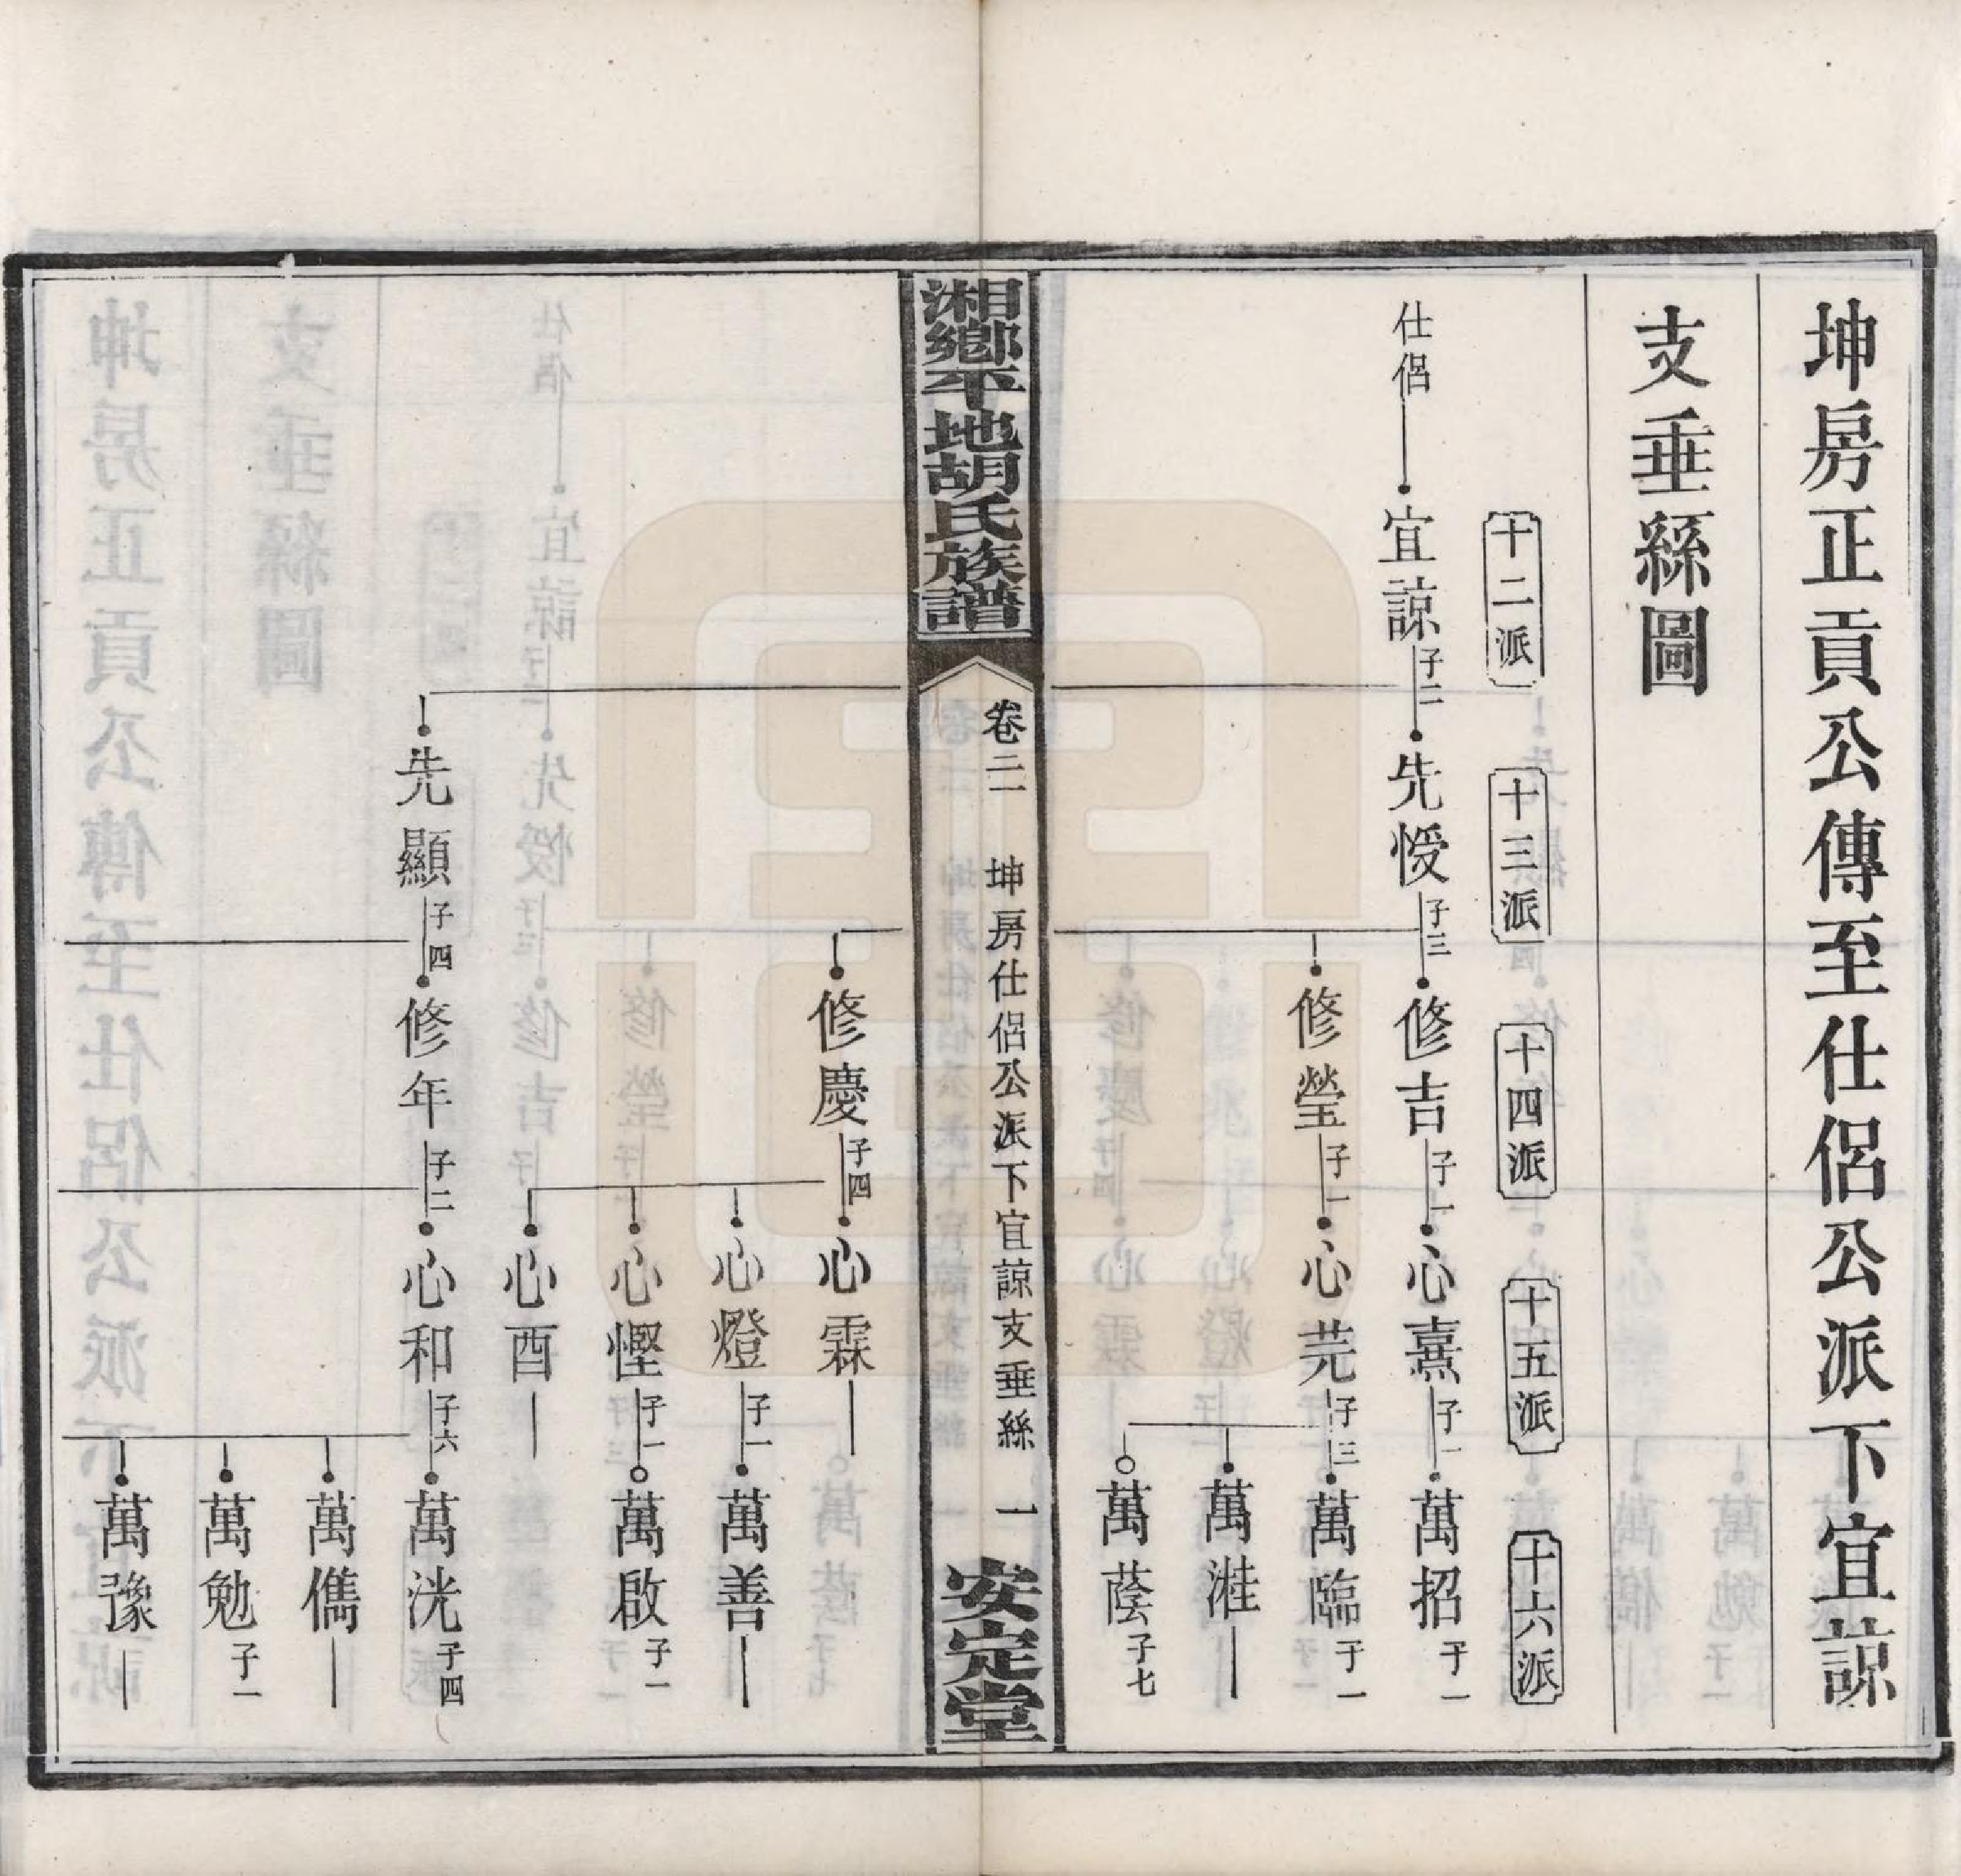 坤房正貢公傳至仕侶公派下宜諒
支垂絲圖
十二派
十三派
十四派
十五派
十六派
仕侶
宜諒
子二
先慢
子三
修吉
子一
心熹
子一
萬招
子一
修瑩
子一
心芫
子三
萬臨
子一
萬溎
萬蔭
子七
湘鄉平地胡氏族譜
卷二
坤房仕侶公派下宜諒支垂絲
一
安定堂
修慶
子四
心霖
心燈
子一
萬善
心慳
子一
萬啟
子一
心酉
先顯
子四
修年
子二
心和
子六
萬洸
子四
萬儁
萬勉
子一
萬豫